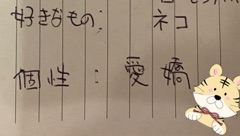 好きなもの; ネコ
個性 : 愛嬌